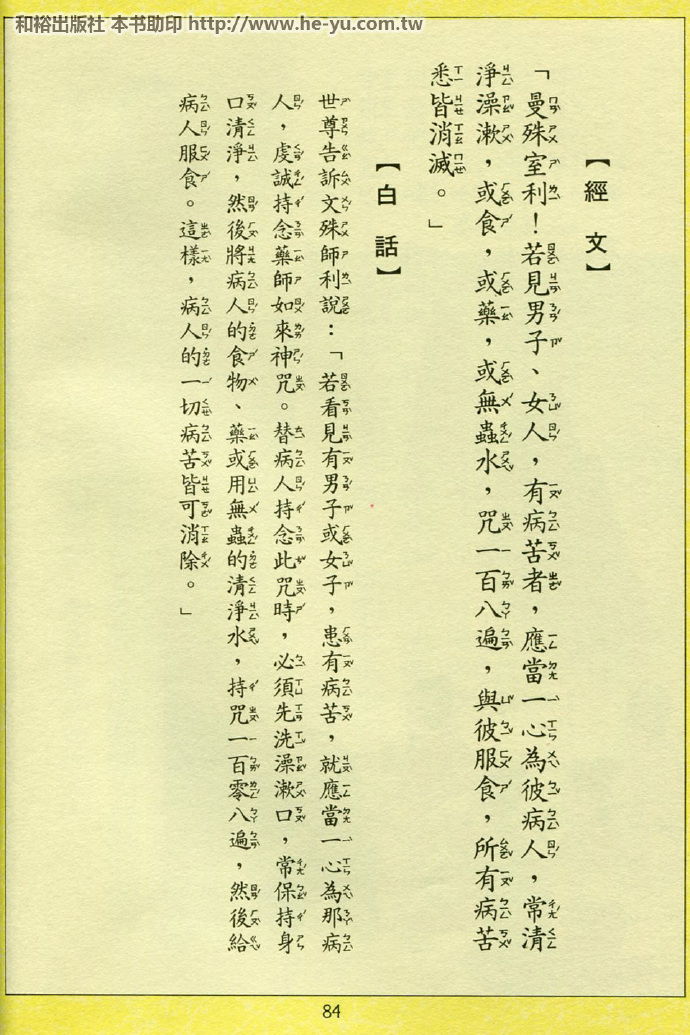 和裕出版社 本书助印 http://www.he-yu.com.tw
【經文】
「曼殊室利！若見男子、女人，有病苦者，應當一心為彼病人，常清
淨澡漱，或食，或藥，或無蟲水，咒一百八遍，與彼服食，所有病苦
悉皆消滅。」
【白話】
世尊告訴文殊師利說：「若看見有男子或女子，患有病苦，就應當一心為那病
人，虔誠持念藥師如來神咒。替病人持念此咒時，必須先洗澡漱口，常保持身
口清淨，然後將病人的食物、藥或用無蟲的清淨水，持咒一百零八遍，然後給
病人服食。這樣，病人的一切病苦皆可消除。」
84